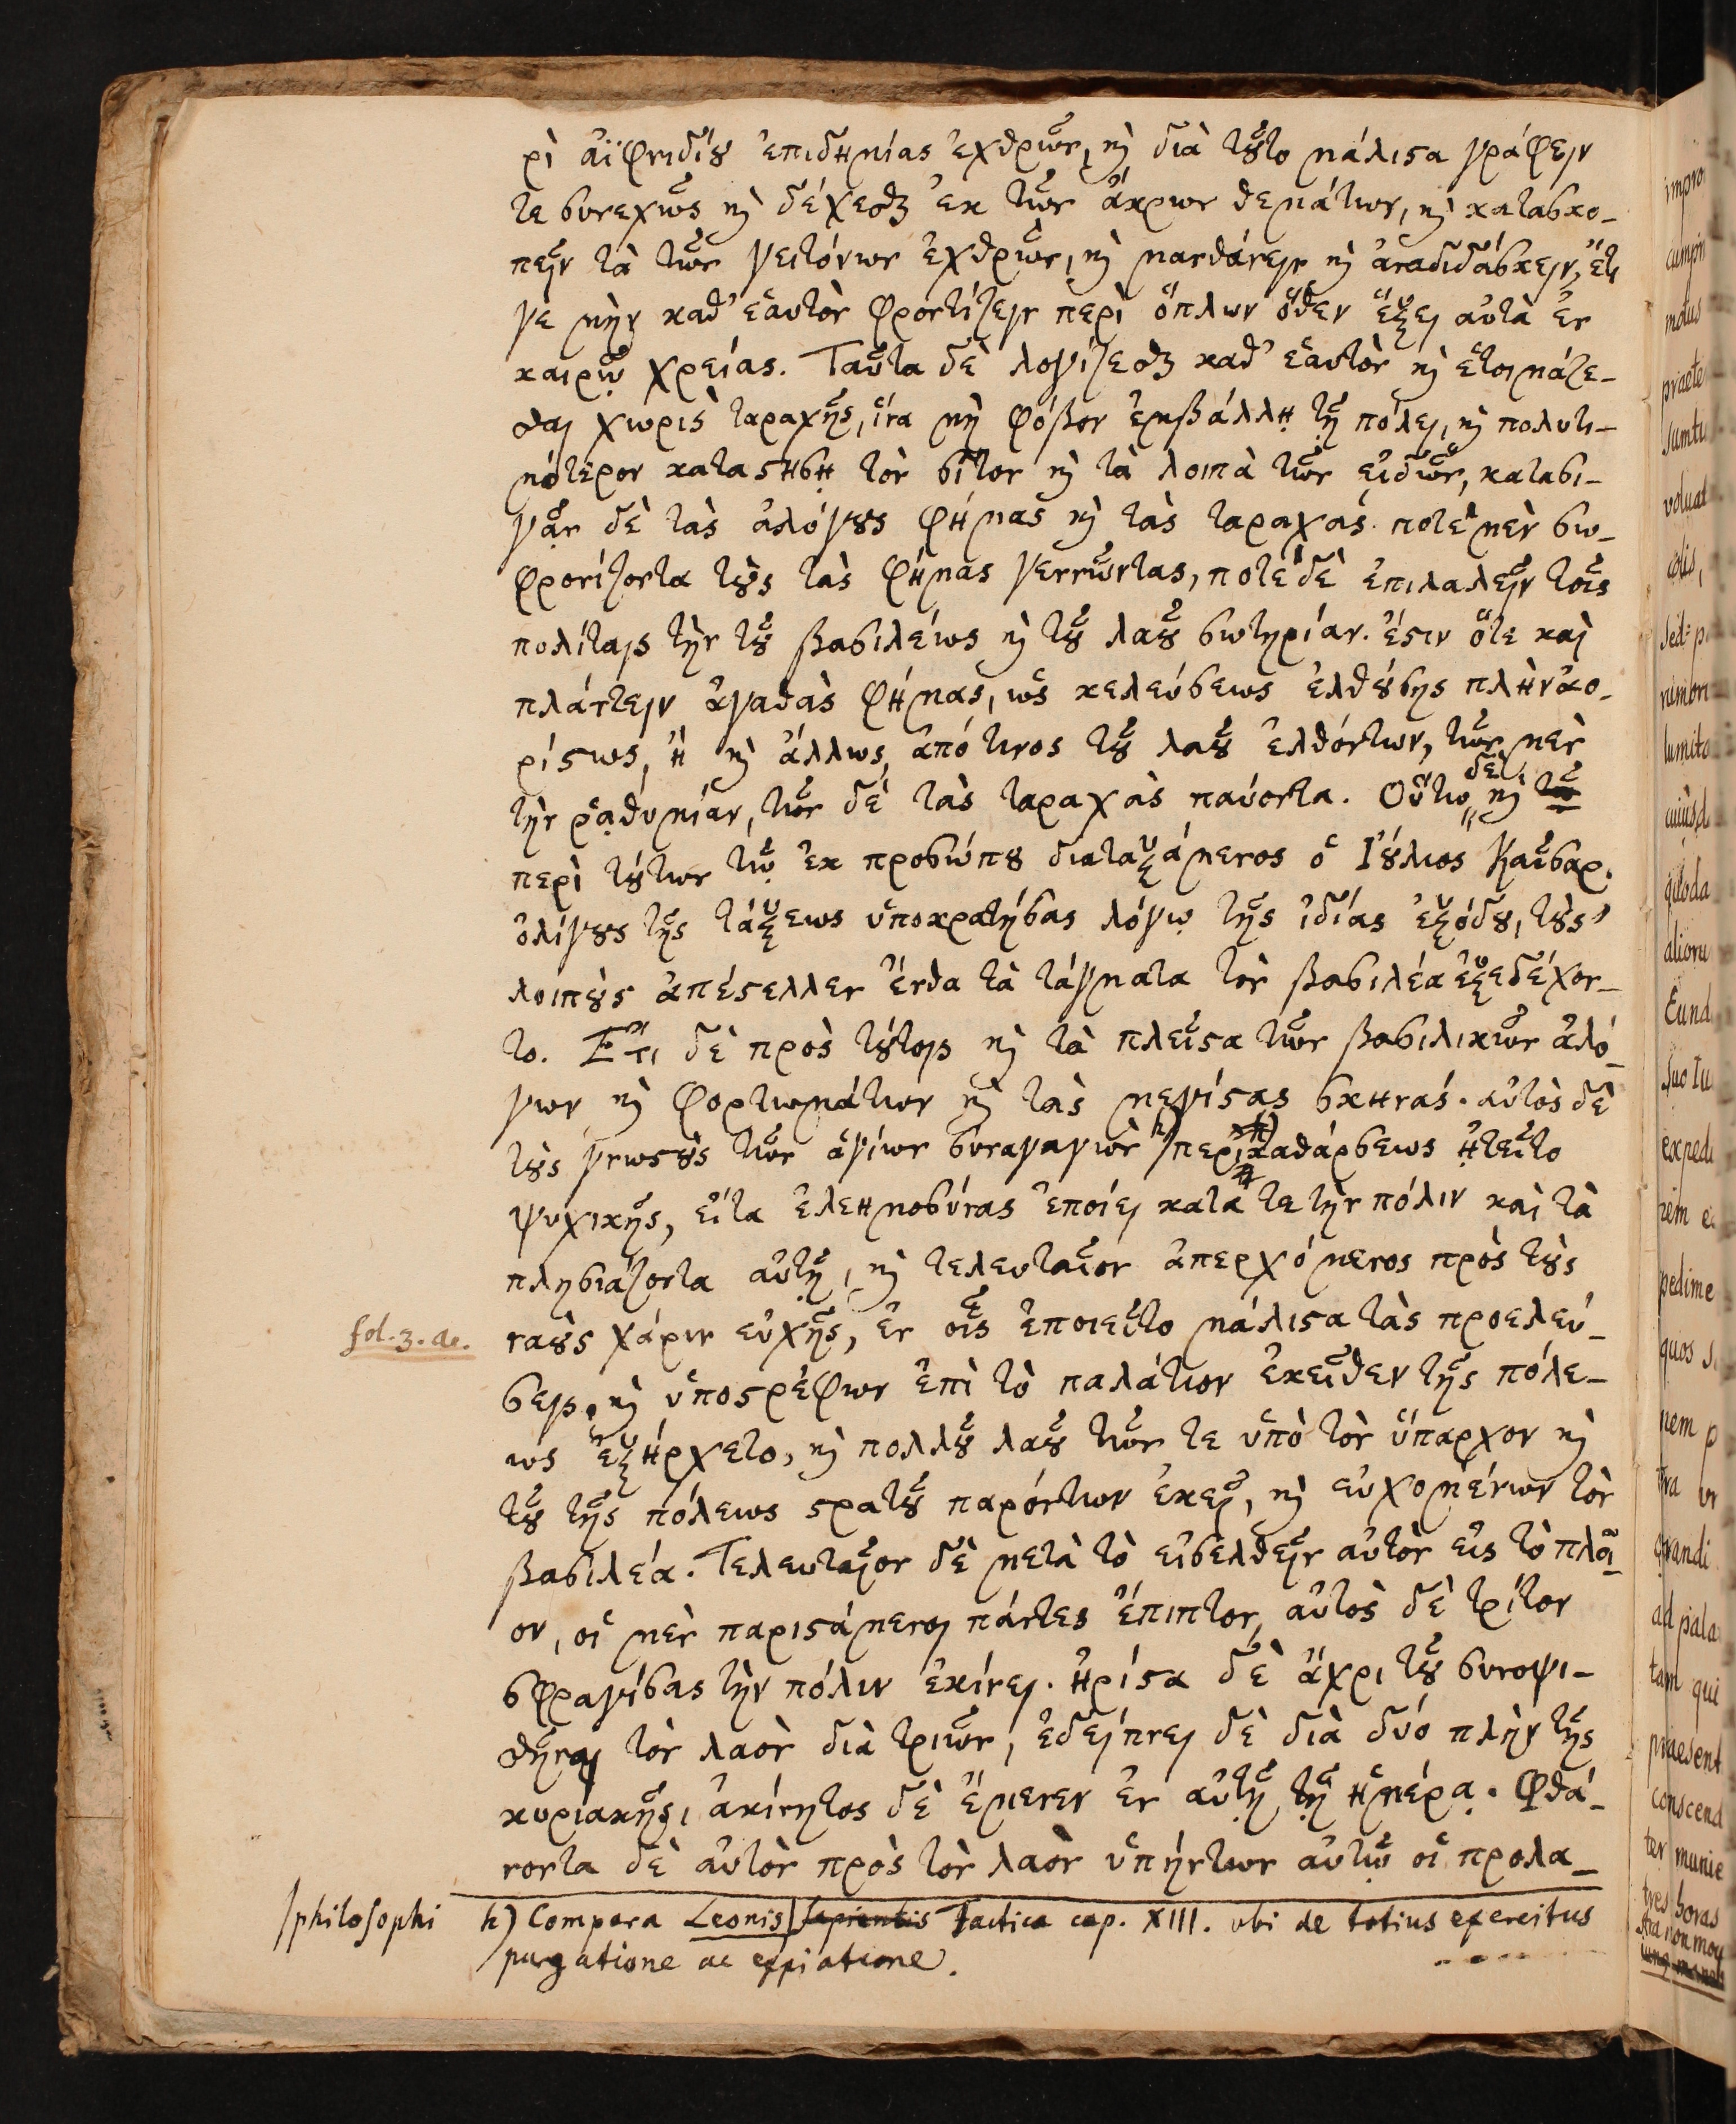 ρὶ αἰφνιδίου ἐπιδημίας ἐχθρῶν, καὶ διὰ τοῦτο μάλιστα γράφειν
τε συνεχῶς καὶ δέχεσθαι ἐκ τῶν ἄκρων θεμάτων, καὶ κατασκο-
πεῖν τὰ τῶν γειτόνων ἐχθρῶν, καὶ μανθάνειν καὶ ἀναδιδάσκειν, ἔτι
γε μὴν καθ' ἑαυτὸν φροντίζειν περὶ ὅπλων ὅθεν ἕξει αὐτὰ ἐν
καιρῷ χρείας. Ταῦτα δὲ λογίζεσθαι καθ' ἑαυτὸν καὶ ἑτοιμάζε-
σθαι χωρὶς ταραχῆς, ἵνα μὴ φόβον ἐμβάλλῃ τῇ πόλει, καὶ πολυτι-
μότερον καταστήσῃ τὸν σῖτον καὶ τὰ λοιπὰ τῶν εἰδῶν, κατασι-
γᾷν δὲ τὰς ἀλόγους φήμας καὶ τὰς ταραχάς. ποτὲ μὲν σω-
φρονίζοντα τοὺς τὰς φήμας γεννῶντας, ποτὲ δὲ ἐπιλαλεῖν τοῖς
πολίταις τὴν τοῦ βασιλέως καὶ τοῦ λαοῦ σωτηρίαν. ἔστιν ὅτε καὶ
πλάττειν ἀγαθὰς φήμας, ὡς κελεύσεως ἐλθούσης πλὴν ἀο-
ρίστως, ἢ καὶ ἄλλως, ἀπό τινος τοῦ λαοῦ ἐλθόντων, τῶν μὲν
τὴν ῥᾳθυμίαν, τῶν δὲ τὰς ταραχὰς παύοντα. Οὕτω δὲ καὶ
περὶ τούτων τῷ ἐκ προσώπου διαταξάμενος ὁ Ἰούλιος Καῖσαρ.
ὀλίγους τῆς τάξεως ὑποκρατήσας λόγῳ τῆς ἰδίας ἐξόδου, τοὺς
λοιποὺς ἀπέστελλεν ἔνθα τὰ τάγματα τὸν βασιλέα ἐξεδέχον-
το. Ἔτι δὲ πρὸς τούτοις καὶ τὰ πλεῖστα τῶν βασιλικῶν ἀλό-
γων καὶ φορτωμάτων καὶ τὰς μεγίστας σκηνάς. αὐτὸς δὲ
τοὺς γνωστοὺς τῶν ἁγίων συναγαγὼν h) περὶ καθάρσεως ᾐτεῖτο
ψυχικῆς, εἶτα ἐλεημοσύνας ἐποίει κατά τε τὴν πόλιν καὶ τὰ
πλησιάζοντα αὐτῇ, καὶ τελευταῖον ἀπερχόμενος πρὸς τοὺς
fol. 3. a. ναοὺς χάριν εὐχῆς, ἐν οἷς ἐποιεῖτο μάλιστα τὰς προελεύ-
σεις, καὶ ὑποστρέφων ἐπὶ τὸ παλάτιον ἐκεῖθεν τῆς πόλε-
ως ἐξήρχετο, καὶ πολλοῦ λαοῦ τῶν τε ὑπὸ τὸν ὕπαρχον καὶ
τοῦ τῆς πόλεως στρατοῦ παρόντων ἐκεῖ, καὶ εὐχομένων τὸν
βασιλέα. Τελευταῖον δὲ μετὰ τὸ εἰσελθεῖν αὐτὸν εἰς τὸ πλοῖ-
ον, οἱ μὲν παριστάμενοι πάντες ἔπιπτον, αὐτὸς δὲ τρίτον
σφραγίσας τὴν πόλιν ἐκίνει. ἠρίστα δὲ ἄχρι τοῦ συνοψι-
σθῆναι τὸν λαὸν διὰ τριῶν, ἐδείπνει δὲ διὰ δύο πλὴν τῆς
κυριακῆς, ἀκίνητος δὲ ἔμενεν ἐν αὐτῇ τῇ ἡμέρᾳ. Φθά-
νοντα δὲ αὐτὸν πρὸς τὸν λαὸν ὑπήντων αὐτῷ οἱ προλα-
h) Compara Leonis /philosophi Tactica cap. XIII. ubi de totius exercitus
purgatione ac expiatione.